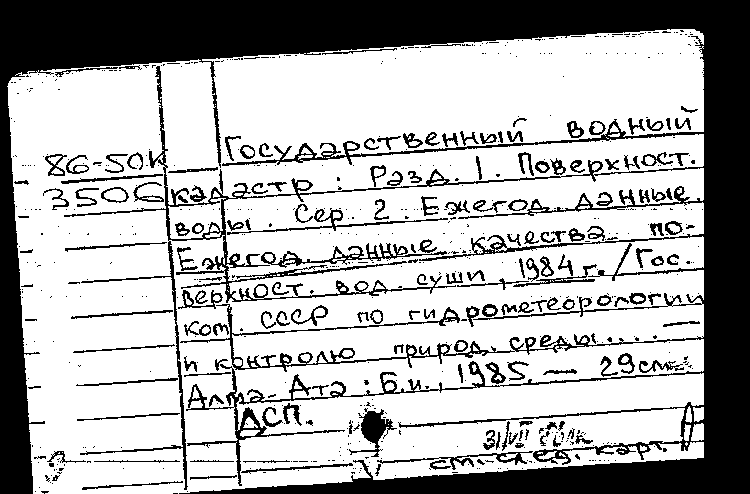 86-50К
3506
Государственный водный
кадастр : Разд. 1. Поверхност.
воды. Сер. 2. Ежегод. данные.
Ежегод. данные качества по-
верхност. вод суши, 1984 г. / Гос.
ком. СССР по гидрометеорологии
и контролю природ. среды.... —
Алма-Ата : Б.и., 1985. — 29см.
ДСП.
31/VII
см. след. карт.